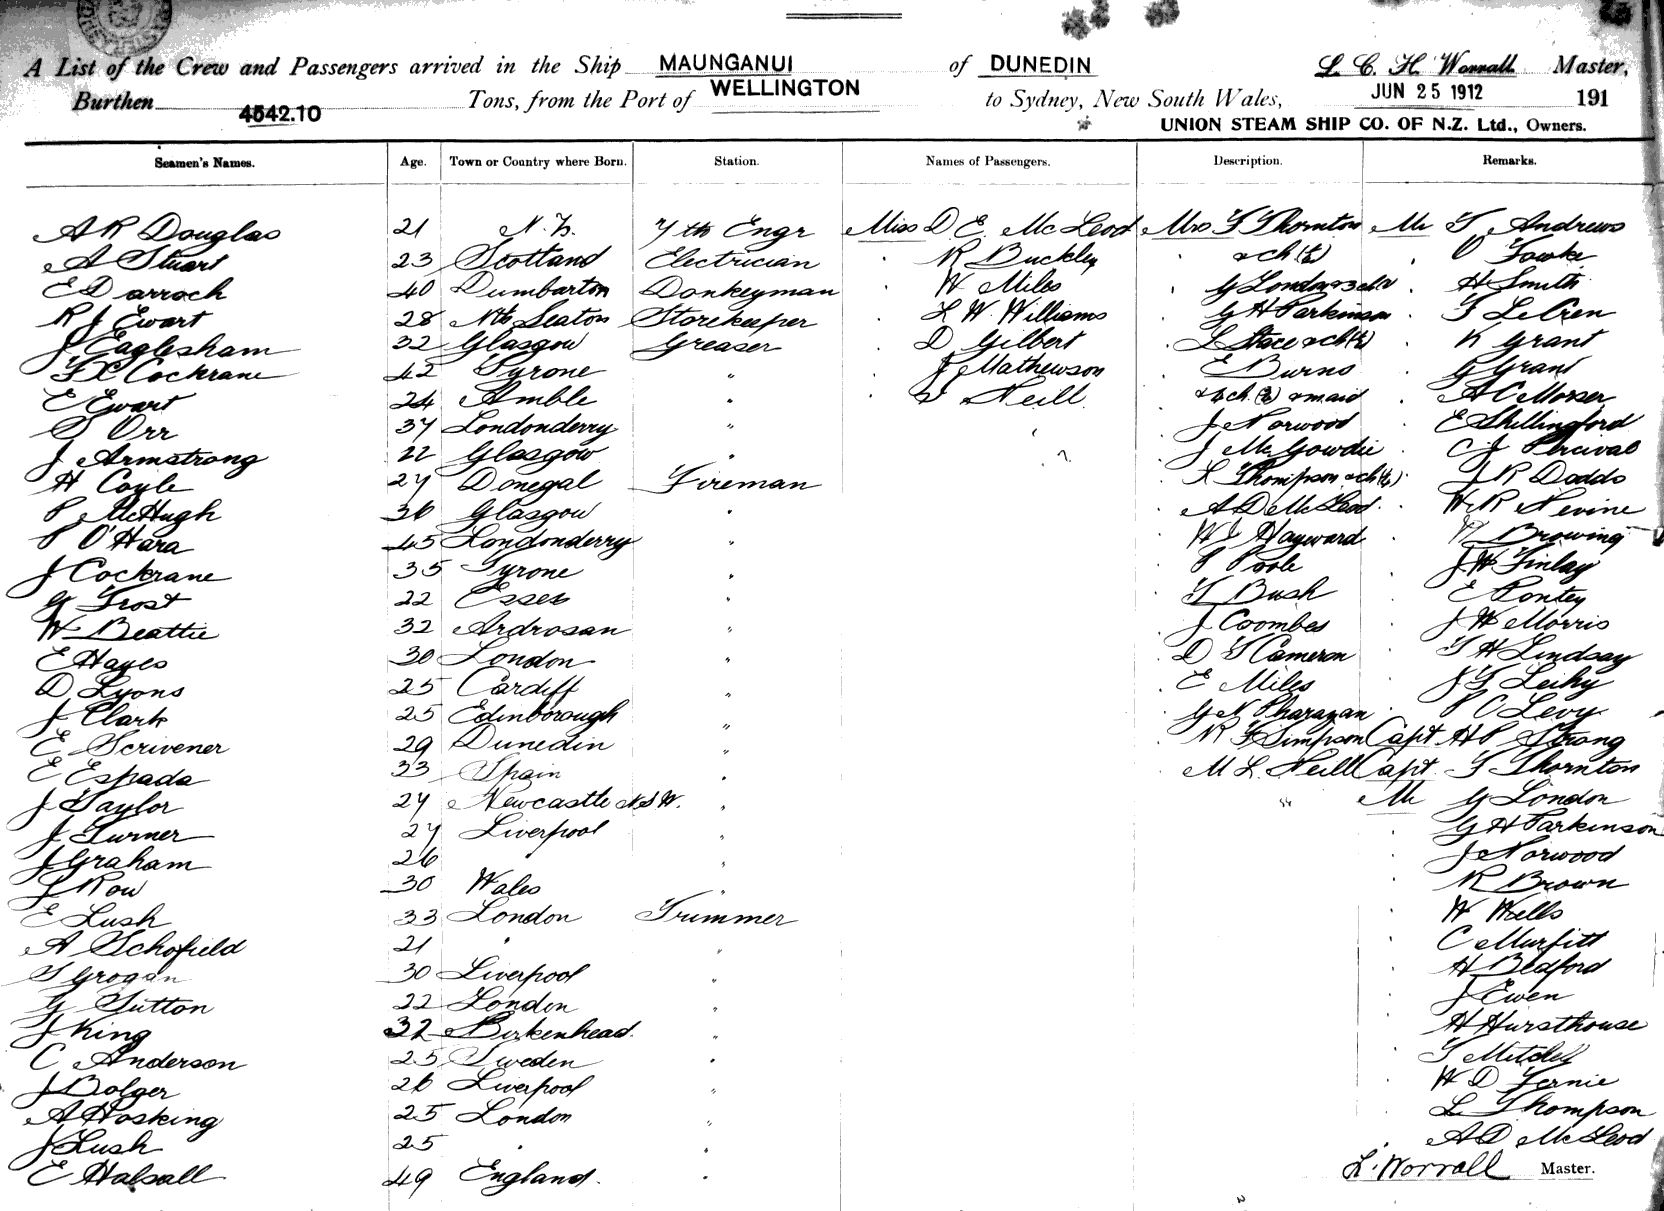 A List of the Crew and Passengers arrived in the Ship MAUNGANUI of DUNEDIN L. C. H. Worrall Master,
Burthen 4542.10 Tons, from the Port of WELLINGTON to Sydney, New South Wales, JUN 25 1912 191
UNION STEAM SHIP CO. OF N.Z. Ltd., Owners.
Seamen's Names. Age. Town or Country where Born. Station. Names of Passengers. Description. Remarks.
A R Douglas 21 N. Z. 7th Engr Miss D E McLeod Mrs T Thornton Mr T Andrews
A Stuart 23 Scotland Electrician " R Buckley " & ch " Fowke
E Darroch 40 Dumbarton Donkeyman " W Miles " G London & ch " H Smith
R J Ewart 28 Nth Seaton Storekeeper " L W Williams " G H Parkinson " T LeCren
J Eaglesham 32 Glasgow Greaser " D Gilbert " L Stace & ch " K Grant
Cockrane 42 Tyrone " " J Mathewson " E Burns " G Grant
E Ewart 24 Amble " " Neill & ch & maid " A C Morser
S Orr 37 Londonderry " " J Norwood " E Shillingford
J Armstrong 22 Glasgow " " J McGowdie " C J Percival
H Coyle 27 Donegal Fireman " L Thompson & ch " J R Dodds
P McHugh 36 Glasgow " " A D McLeod " W R Nevine
P O'Hara 45 Londonderry " " W J Hayward " Browing
J Cockrane 35 Tyrone " " P Poole " J W Finlay
G Frost 22 Essex " " T Bush " E Pontey
W Beattie 32 Ardrosan " " J Coombes " J W Morris
E Hayes 30 London " " D T Cameron " T H Lindsay
D Lyons 25 Cardiff " " E Miles " J T Leihy
J Clark 25 Edinborough " " G N Pharazan " P C Levy
E Scrivener 29 Dunedin " " R F Simpson Capt H P Strong
E Espada 33 Spain " " M L Neill Capt T Thornton
J Taylor 27 Newcastle N.S.W. " Mr G London
J Turner 27 Liverpool " " G H Parkinson
J Graham 26 " " J Norwood
J Row 30 Wales " " R Brown
E Lush 33 London Trimmer " W Wells
A Schofield 21 " " " C Murfitt
T Grogan 30 Liverpool " " H Bedford
G Sutton 22 London " " J Ewen
J King 32 Birkenhead " " H Hursthouse
C Anderson 25 Sweden " " T Mitchell
J Bolger 26 Liverpool " " W D Fernie
A Hosking 25 London " " L Thompson
J Lush 25 " " " A D McLeod
E Halsall 49 England. " L. Worrall Master.